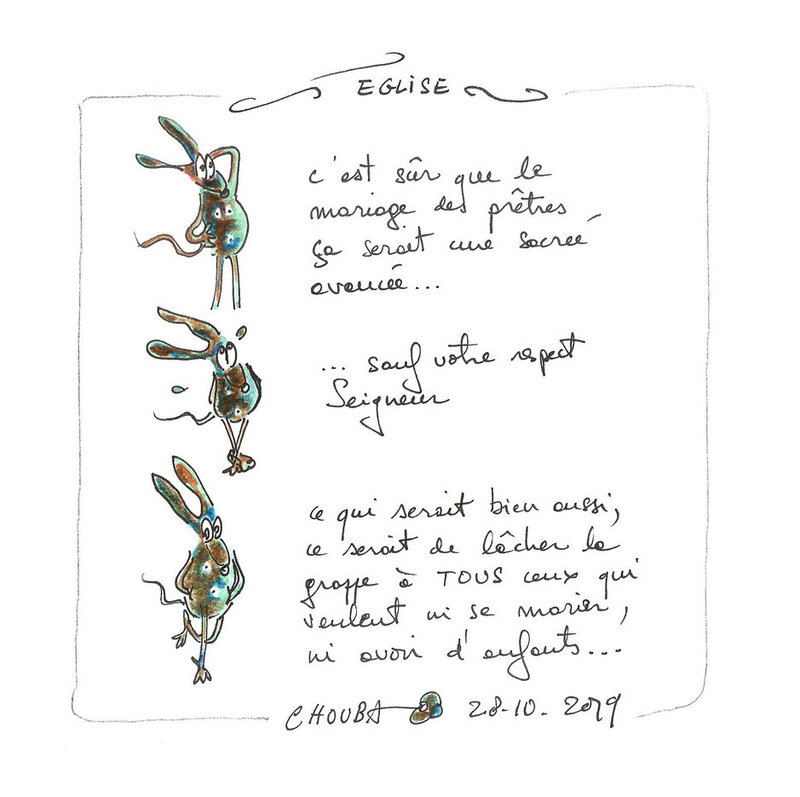 EGLISE
c'est sûr que le
mariage des prêtres
ça serait une sacrée
avancée...
... sauf votre respect
Seigneur
ce qui serait bien aussi,
ce serait de lâcher la
grappe à TOUS ceux qui
veulent ni se marier,
ni avoir d'enfants...
CHOUBA 28-10-2019